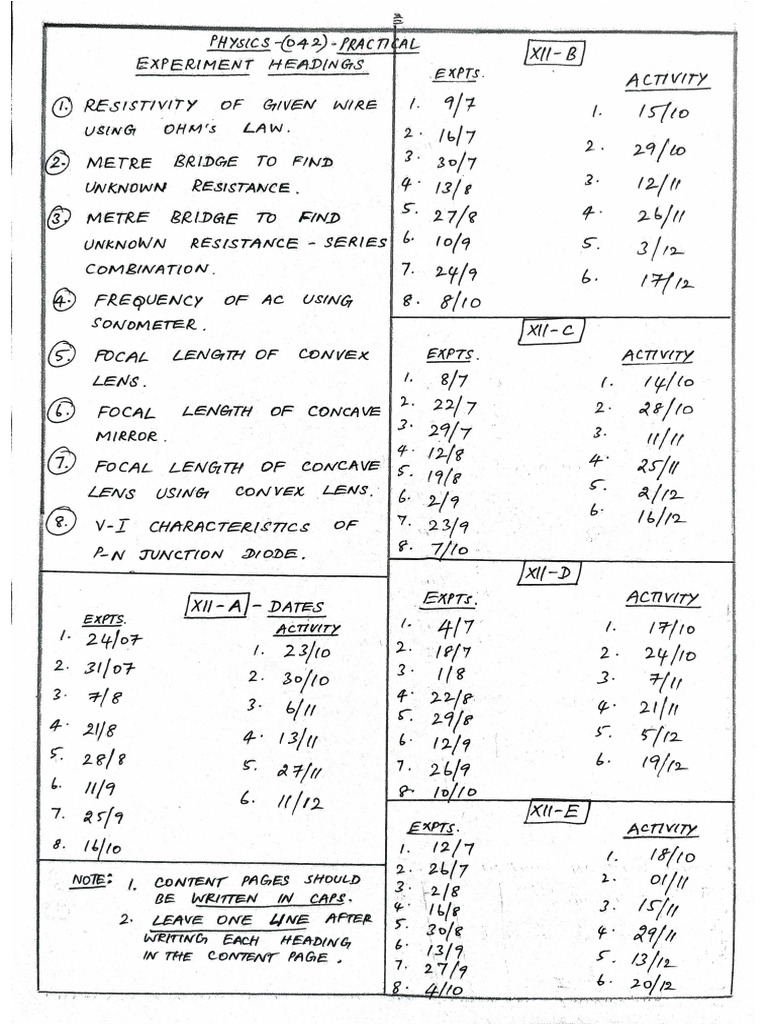 PHYSICS-(042)-PRACTICAL
EXPERIMENT HEADINGS
1. RESISTIVITY OF GIVEN WIRE
USING OHM'S LAW.
2. METRE BRIDGE TO FIND
UNKNOWN RESISTANCE.
3. METRE BRIDGE TO FIND
UNKNOWN RESISTANCE - SERIES
COMBINATION.
4. FREQUENCY OF AC USING
SONOMETER.
5. FOCAL LENGTH OF CONVEX
LENS.
6. FOCAL LENGTH OF CONCAVE
MIRROR.
7. FOCAL LENGTH OF CONCAVE
LENS USING CONVEX LENS.
8. V-I CHARACTERISTICS OF
P-N JUNCTION DIODE.
XII-A - DATES
EXPTS.
1. 24/07
2. 31/07
3. 7/8
4. 21/8
5. 28/8
6. 11/9
7. 25/9
8. 16/10
ACTIVITY
1. 23/10
2. 30/10
3. 6/11
4. 13/11
5. 27/11
6. 11/12
NOTE: 1. CONTENT PAGES SHOULD
BE WRITTEN IN CAPS.
2. LEAVE ONE LINE AFTER
WRITING EACH HEADING
IN THE CONTENT PAGE.
XII-B
EXPTS.
1. 9/7
2. 16/7
3. 30/7
4. 13/8
5. 27/8
6. 10/9
7. 24/9
8. 8/10
ACTIVITY
1. 15/10
2. 29/10
3. 12/11
4. 26/11
5. 3/12
6. 17/12
XII-C
EXPTS.
1. 8/7
2. 22/7
3. 29/7
4. 12/8
5. 19/8
6. 2/9
7. 23/9
8. 7/10
ACTIVITY
1. 14/10
2. 28/10
3. 11/11
4. 25/11
5. 2/12
6. 16/12
XII-D
EXPTS.
1. 4/7
2. 18/7
3. 1/8
4. 22/8
5. 29/8
6. 12/9
7. 26/9
8. 10/10
ACTIVITY
1. 17/10
2. 24/10
3. 7/11
4. 21/11
5. 5/12
6. 19/12
XII-E
EXPTS.
1. 12/7
2. 26/7
3. 2/8
4. 16/8
5. 30/8
6. 13/9
7. 27/9
8. 4/10
ACTIVITY
1. 18/10
2. 01/11
3. 15/11
4. 29/11
5. 13/12
6. 20/12